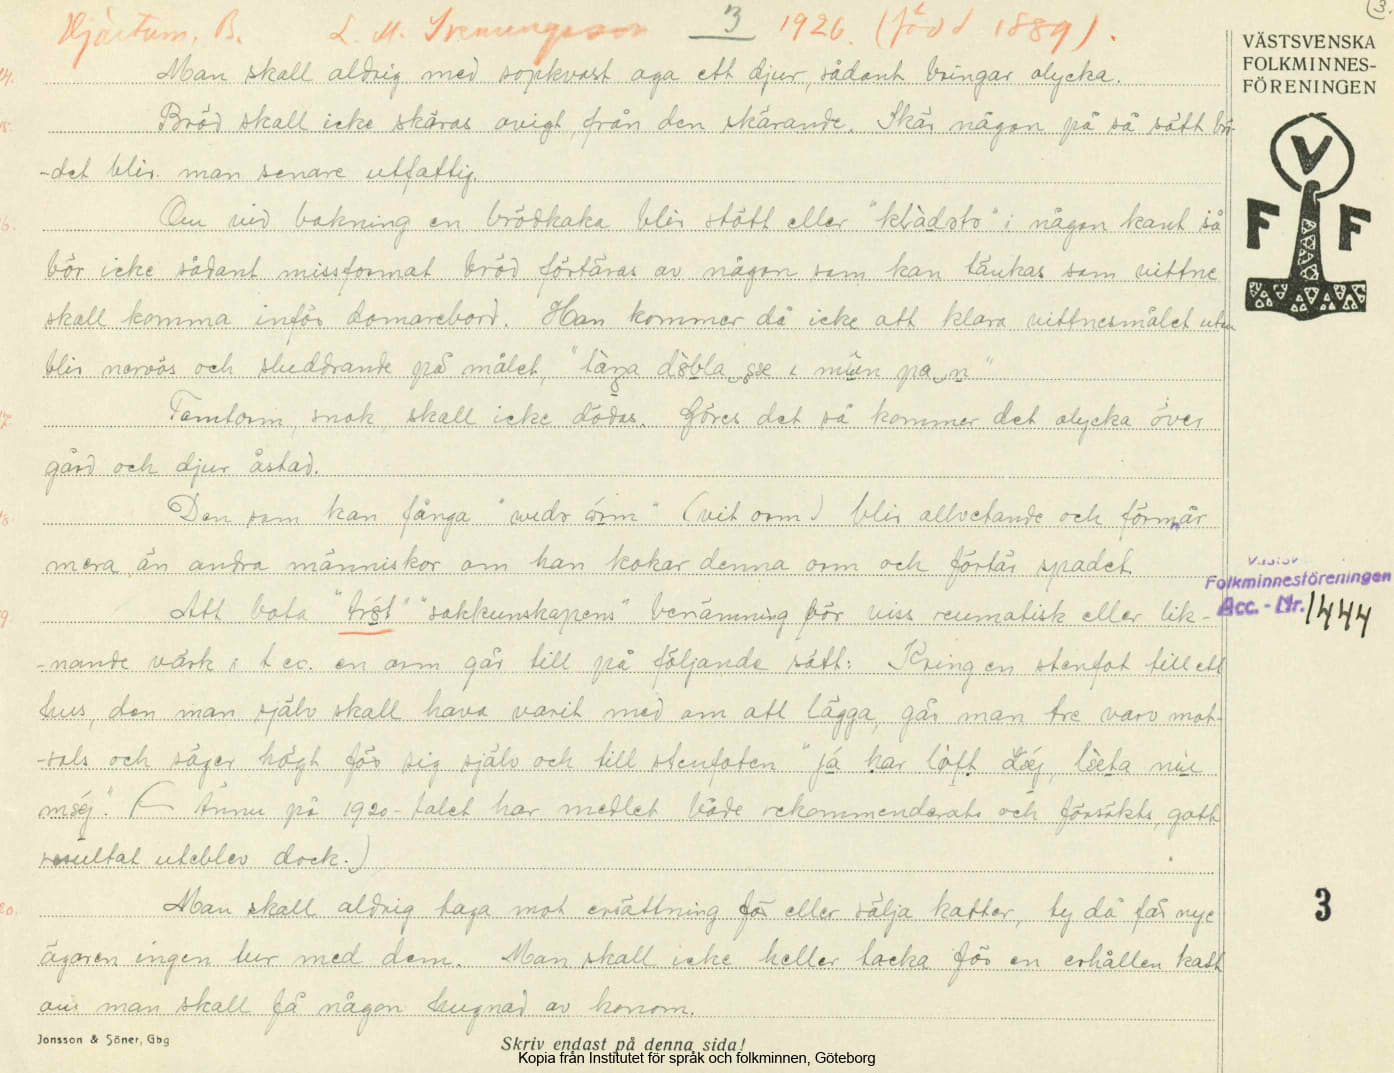 3.
Hjärtum. B. L. M. Svenungsson 3 1926. (född 1889).
VÄSTSVENSKA
FOLKMINNES-
FÖRENINGEN
V
F F
14. Man skall aldrig med sopkvast aga ett djur, sådant bringar olycka.
15. Bröd skall icke skäras avigt, från den skärande. Skär någon på så sätt brö-
-det blir man senare utfattig.
16. Om vid bakning en brödkaka blir stött eller " " i någon kant så
bör icke sådant missformat bröd förtäras av någon som kan tänkas som vittne
skall komma inför domarebord. Han kommer då icke att klara vittnesmålet utan
blir nervös och sluddrande på målet, "
17. Tomtorm, snok skall icke dödas. Göres det så kommer det olycka över
gård och djur åstad.
18. Den som kan fånga " " (vit orm) blir allvetande och förmår
mera än andra människor om han kokar denna orm och förtär spadet.
19. Att bota "trøst" "sakkunskapens" benämning för viss reumatisk eller lik-
-nande värk i t ex. en arm går till på följande sätt: Kring en stenfot till ett
hus, den man själv skall hava varit med om att lägga, går man tre varv mot-
-sols och säger högt för sig själv och till stenfoten "já har löft
" ( Ännu på 1920-talet har medlet både rekommenderats och försökts, gott
resultat uteblev dock.)
20. Man skall aldrig taga mot ersättning för eller sälja katter, ty då får nye
ägaren ingen tur med dem. Man skall icke heller tacka för en erhållen katt
om man skall få någon hugnad av honom.
Folkminnesföreningen
Acc. - Nr. 1444
3
Jonsson & Söner, Gbg
Skriv endast på denna sida!
Kopia från Institutet för språk och folkminnen, Göteborg